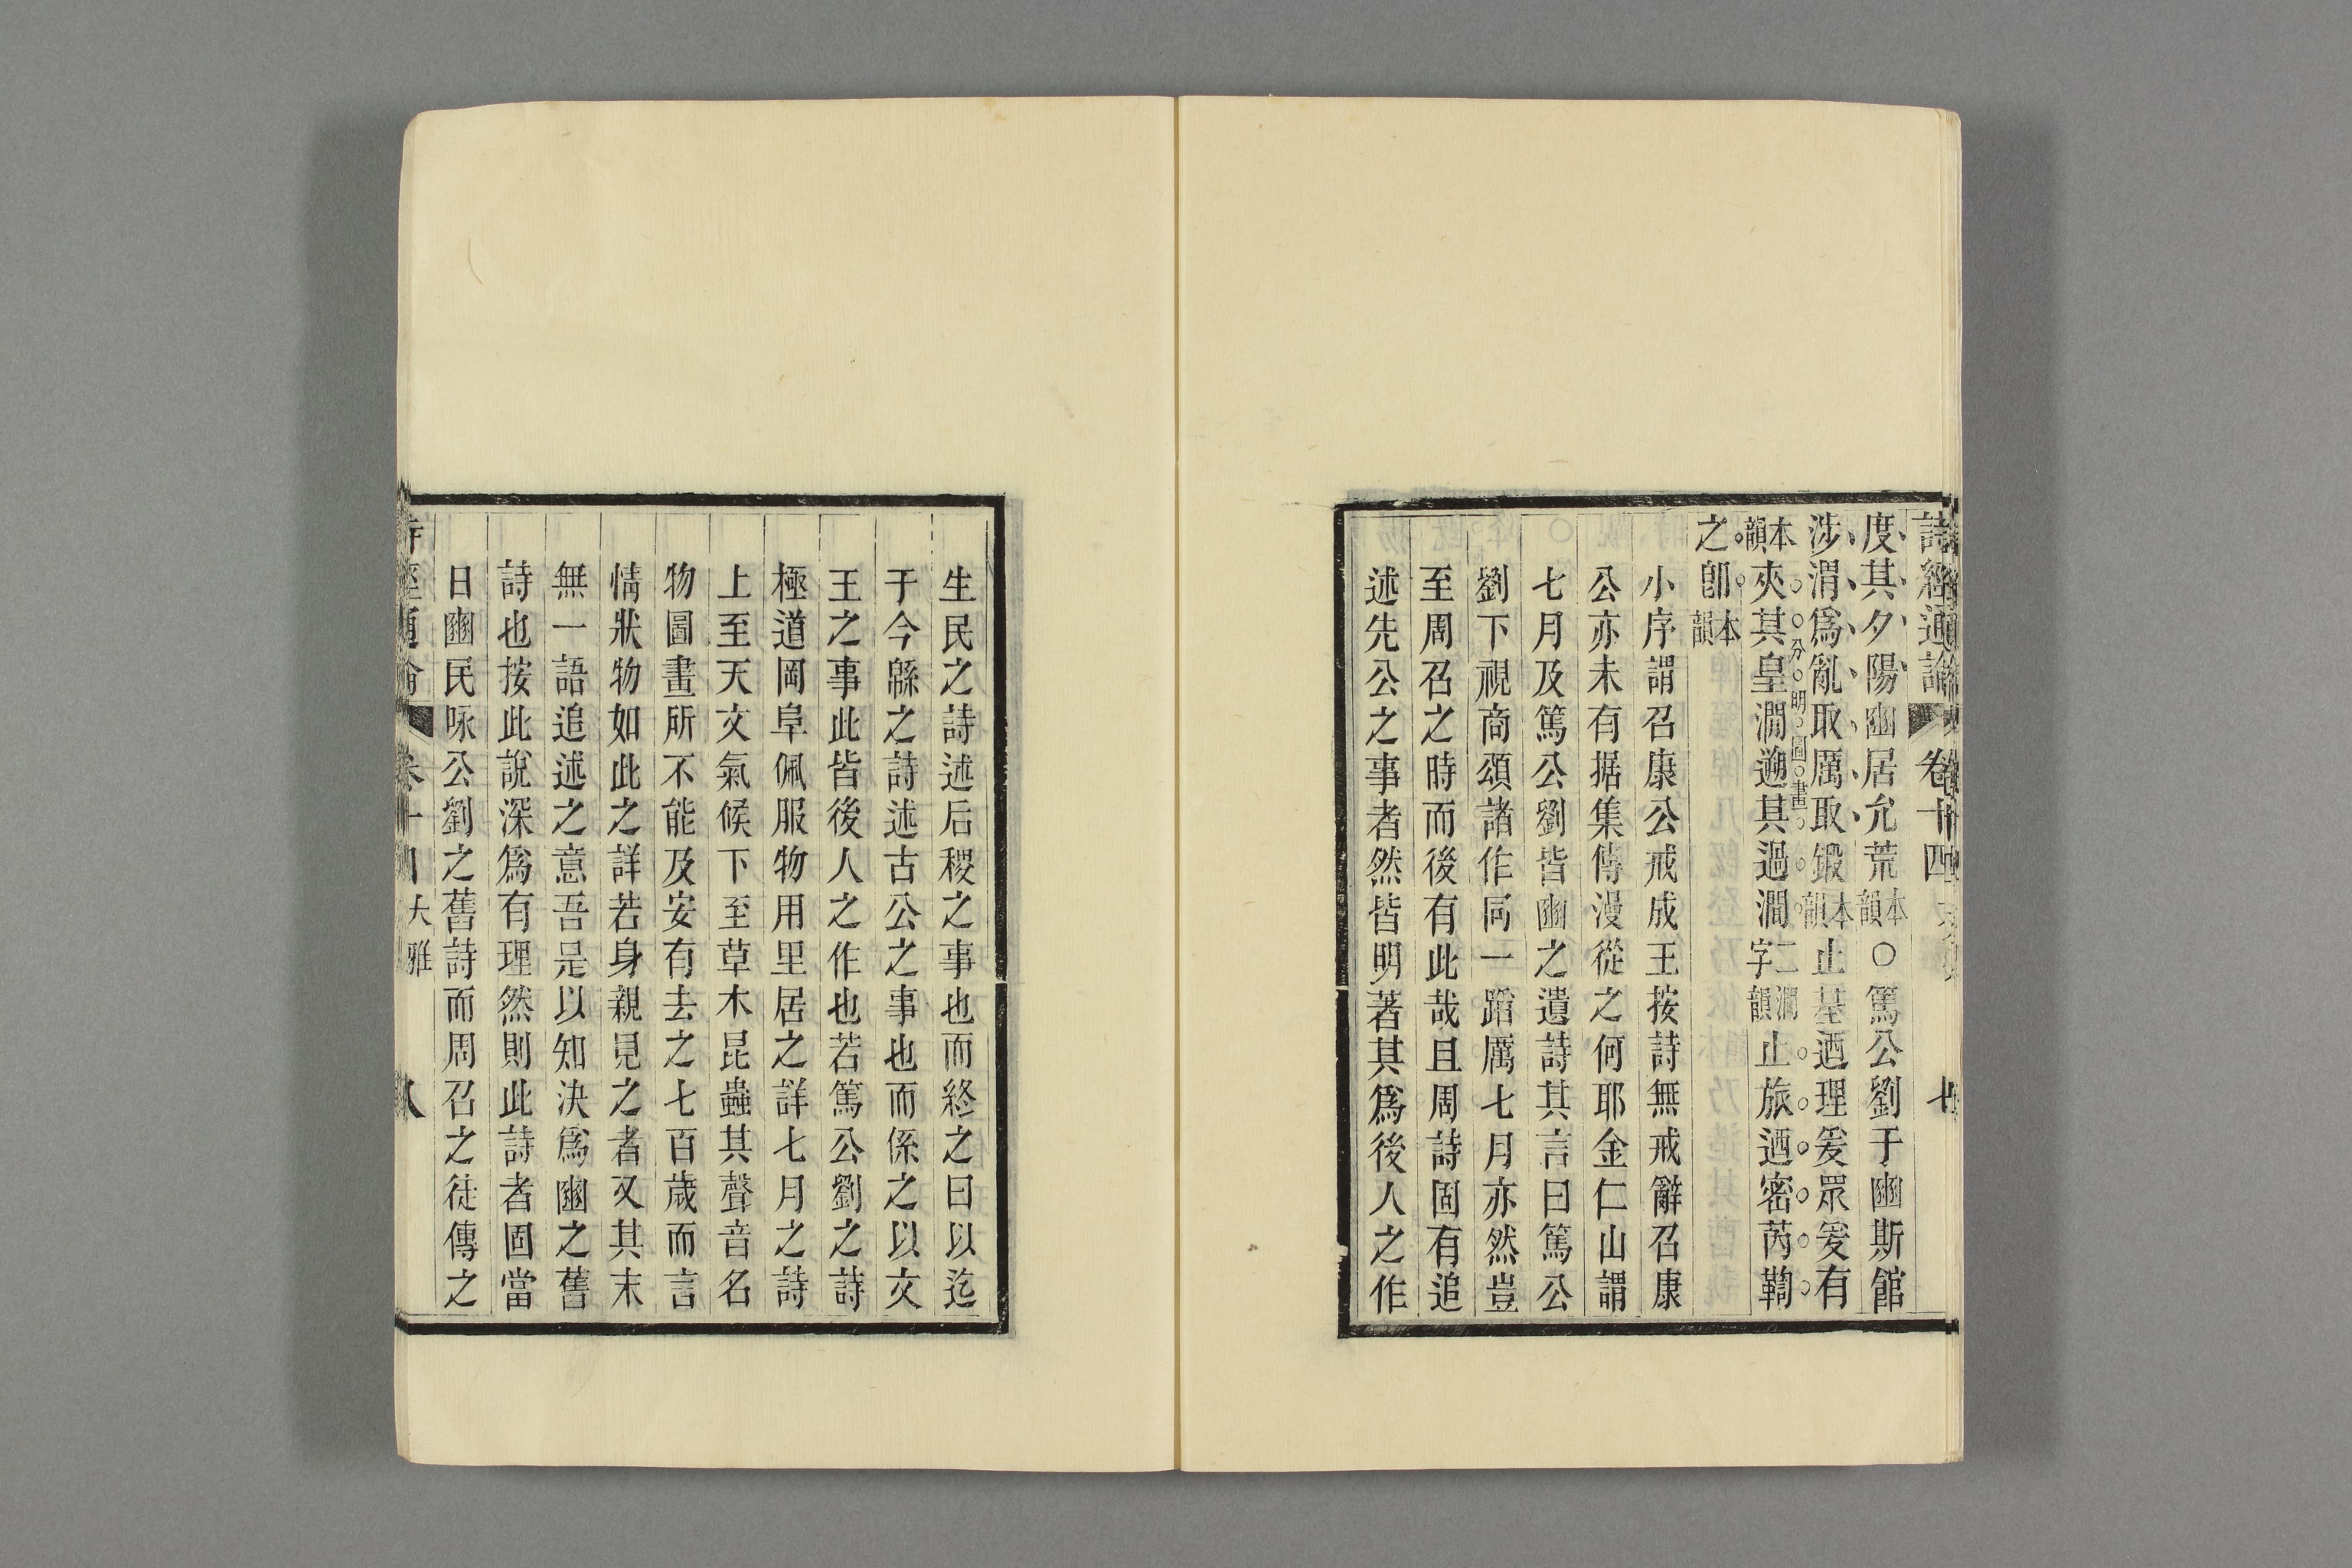 詩經通論 卷十四 七
度其夕陽豳居允荒本韻○篤公劉于豳斯館
涉渭爲亂取厲取鍛本韻止基迺理爰眾爰有
分明圖畫
本韻夾其皇澗遡其過澗二澗字韻止旅迺密芮鞫
之卽本韻
小序謂召康公戒成王按詩無戒辭召康
公亦未有据集傳漫從之何耶金仁山謂
七月及篤公劉皆豳之遺詩其言曰篤公
劉下視商頌諸作同一蹈厲七月亦然豈
至周召之時而後有此哉且周詩固有追
述先公之事者然皆明著其爲後人之作
生民之詩述后稷之事也而終之曰以迄
于今緜之詩述古公之事也而係之以文
王之事此皆後人之作也若篤公劉之詩
極道岡阜佩服物用里居之詳七月之詩
上至天文氣候下至草木昆蟲其聲音名
物圖畫所不能及安有去之七百歲而言
情狀物如此之詳若身親見之者又其末
無一語追述之意吾是以知決爲豳之舊
詩也按此說深爲有理然則此詩者固當
日豳民咏公劉之舊詩而周召之徒傳之
詩經通論 卷十四 大雅 八